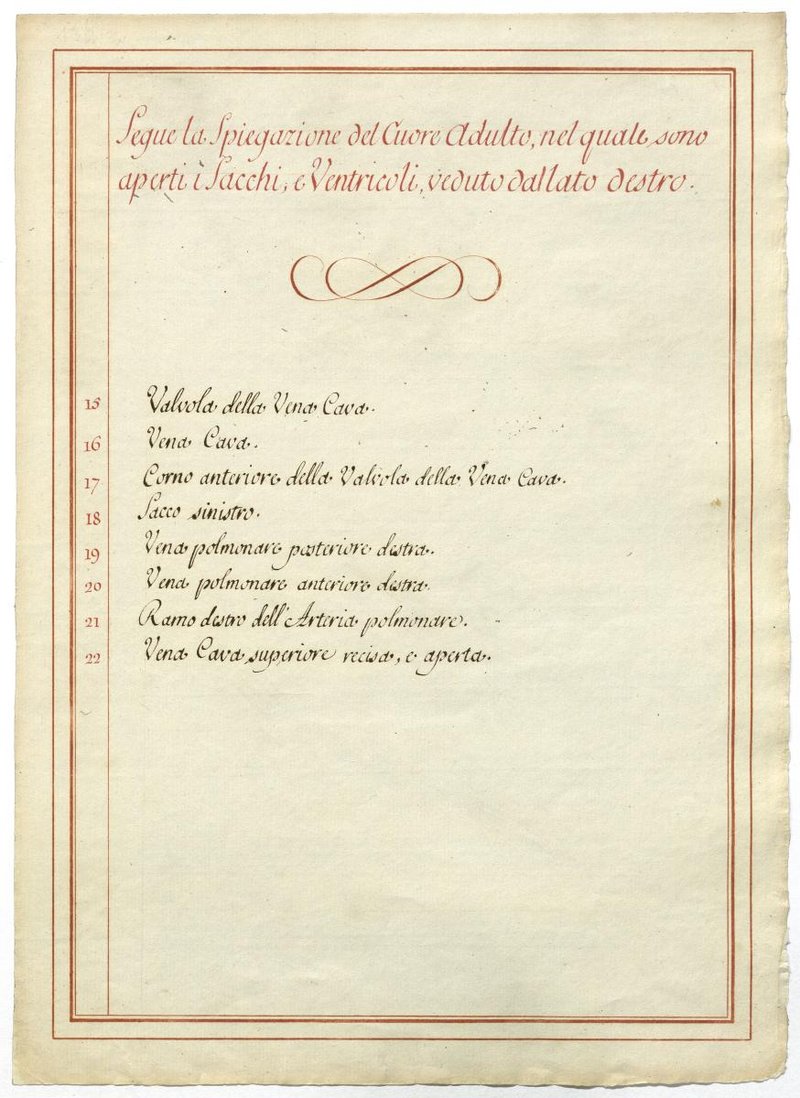 Segue la Spiegazione del Cuore Adulto, nel quale sono
aperti i Sacchi, e Ventricoli, veduto dal lato destro.
15 Valvola della Vena Cava.
16 Vena Cava.
17 Corno anteriore della Valvola della Vena Cava.
18 Sacco sinistro.
19 Vena polmonare posteriore destra.
20 Vena polmonare anteriore destra.
21 Ramo destro dell'Arteria polmonare.
22 Vena Cava superiore recisa, e aperta.